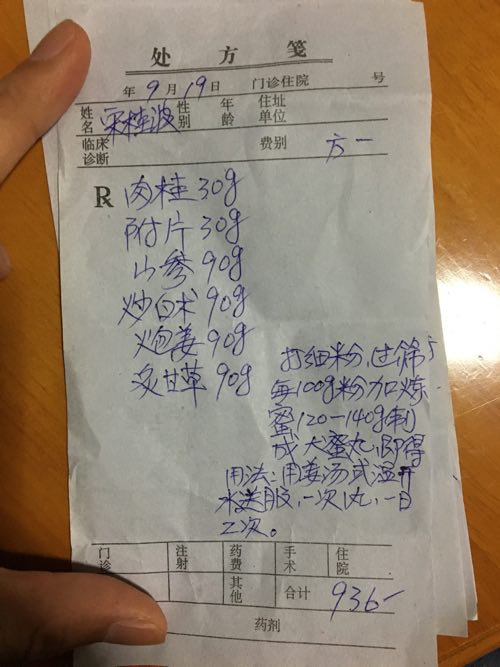 处 方 笺
年 9 月 19 日 门诊住院 号
姓名 宋桂波 性别 年龄 住址单位
临床诊断 费别 方一
R 肉桂 30g
附片 30g
山参 90g
炒白术 90g
炮姜 90g
炙甘草 90g
打细粉,过筛,
每100g粉加炼
蜜120-140g制
成大蜜丸,即得
用法:用姜汤或温开
水送服,一次1丸,一日
二次。
门诊 注射 药费 手术 住院
其他 合计 936-
药剂